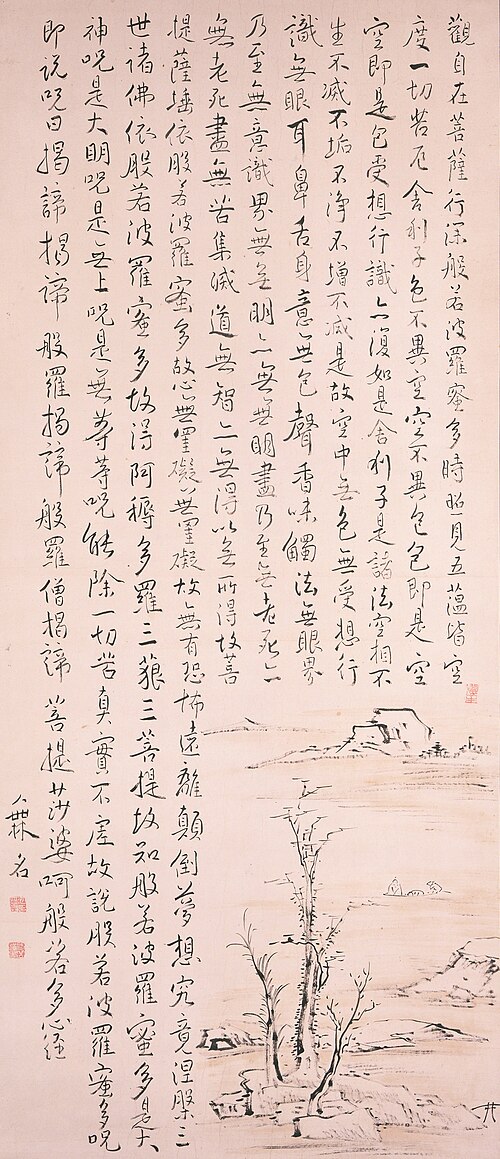 觀自在菩薩行深般若波羅蜜多時照見五蘊皆空
度一切苦厄舍利子色不異空空不異色色即是空
空即是色受想行識亦復如是舍利子是諸法空相不
生不滅不垢不淨不增不减是故空中無色無受想行
識無眼耳鼻舌身意無色聲香味觸法無眼界
乃至無意識界無無明亦無無明盡乃至無老死亦
無老死盡無苦集滅道無智亦無得以無所得故菩
提薩埵依般若波羅蜜多故心無罣礙無罣礙故無有恐怖遠離顛倒夢想究竟涅槃三
世諸佛依般若波羅蜜多故得阿耨多羅三藐三菩提故知般若波羅蜜多是大
神呪是大明呪是無上呪是無等等呪能除一切苦真實不虛故說般若波羅蜜多呪
即說呪曰揭諦揭諦般羅揭諦般羅僧揭諦菩提莎婆呵般若多心經